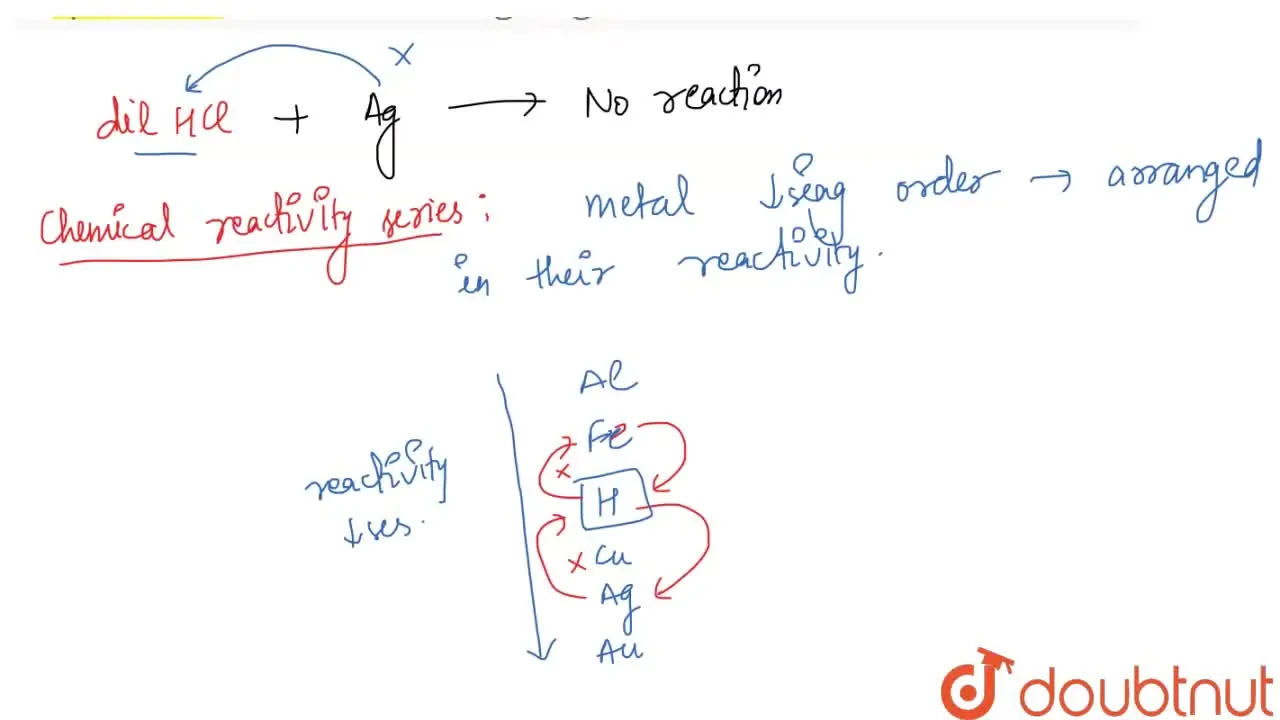 dil HCl + Ag → No reaction
x
Chemical reactivity series: metal ↓seag order → arranged
by
in their reactivity.
Al
Fe
reactivity
↓ses.
x
H
x Cu
Ag
Au
doubtnut